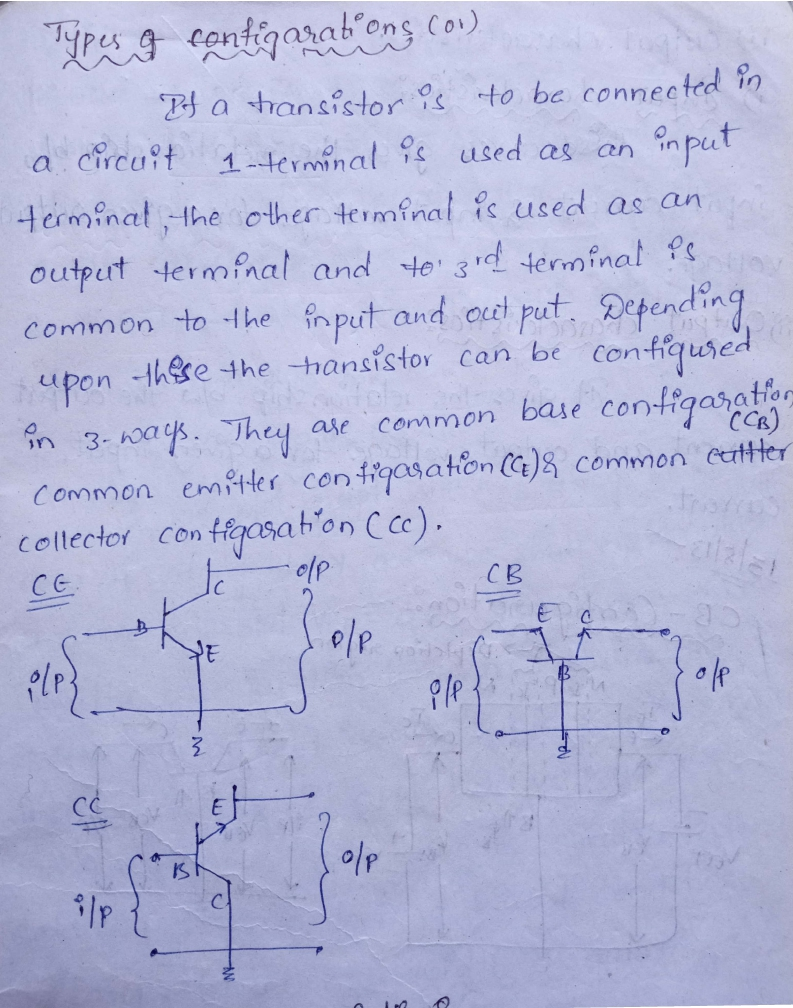 Types of configarations (or)
If a transistor is to be connected in
a circuit 1-terminal is used as an input
terminal, the other terminal is used as an
output terminal and to 3rd terminal is
common to the input and out put. Depending
upon these the transistor can be configured
in 3-ways. They are common base configaration
(CB)
common emitter configaration (CE) & common
collector configaration (CC).
CE
C
o/p
B
E
i/p
o/p
CB
E C
B
i/p
o/p
CC
E
B
C
i/p
o/p